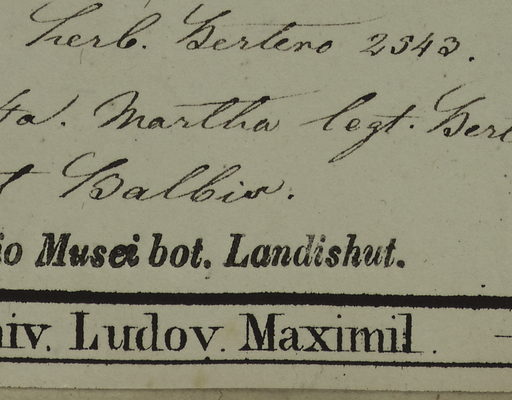 Herb. Bertero 2543.
ta. Martha legt. Bert
t Balbis.
io Musei bot. Landishut.
niv. Ludov. Maximil.